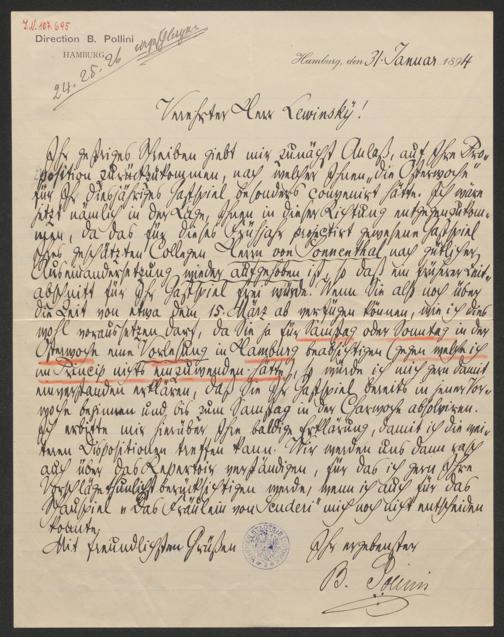 I.N. 107.695
Direction B. Pollini
HAMBURG.
24. 25. 26
Hamburg, den 31. Januar 1894
Verehrter Herr Lewinsky!
Ihr gestriges Schreiben giebt mir zunächst Anlaß, auf Ihre Pro-
position zurückzukommen, nach welcher Ihnen „die Osterwoche"
für Ihr diesjähriges Gastspiel besonders convenirt hätte. Ich wäre
jetzt nämlich in der Lage, Ihnen in dieser Richtung entgegenzukom-
men, da das für dieses Frühjahr projectirt gewesene Gastspiel
Ihres geschätzten Collegen Herrn von Sonnenthal nach gütlicher
Auseinandersetzung wieder aufgehoben ist, so daß ein früherer Zeit-
abschnitt für Ihr Gastspiel frei würde. Wenn Sie also noch über
die Zeit von etwa dem 15. März ab verfügen können, wie ich dies
wohl voraussetzen darf, da Sie ja für Samstag oder Sonntag in der
Osterwoche eine Vorlesung in Hamburg beabsichtigen gegen welche ich
im Princip nichts einzuwenden hätte, so würde ich mich gern damit
einverstanden erklären, daß Sie Ihr Gastspiel bereits in jener Vor-
woche beginnen und bis zum Samstag in der Charwoche absolviren.
Ich erbitte mir hierüber Ihre baldige Erklärung, damit ich die wei-
teren Dispositionen treffen kann. Wir werden uns dann rasch
auch über das Repertoir verständigen, für das ich gern Ihre
Vorschläge thunlichst berücksichtigen werde, wenn ich auch für das
Schauspiel „Das Fräulein von Scuderi" mich noch nicht entscheiden
konnte.
Mit freundlichsten Grüßen
Ihr ergebenster
B. Pollini